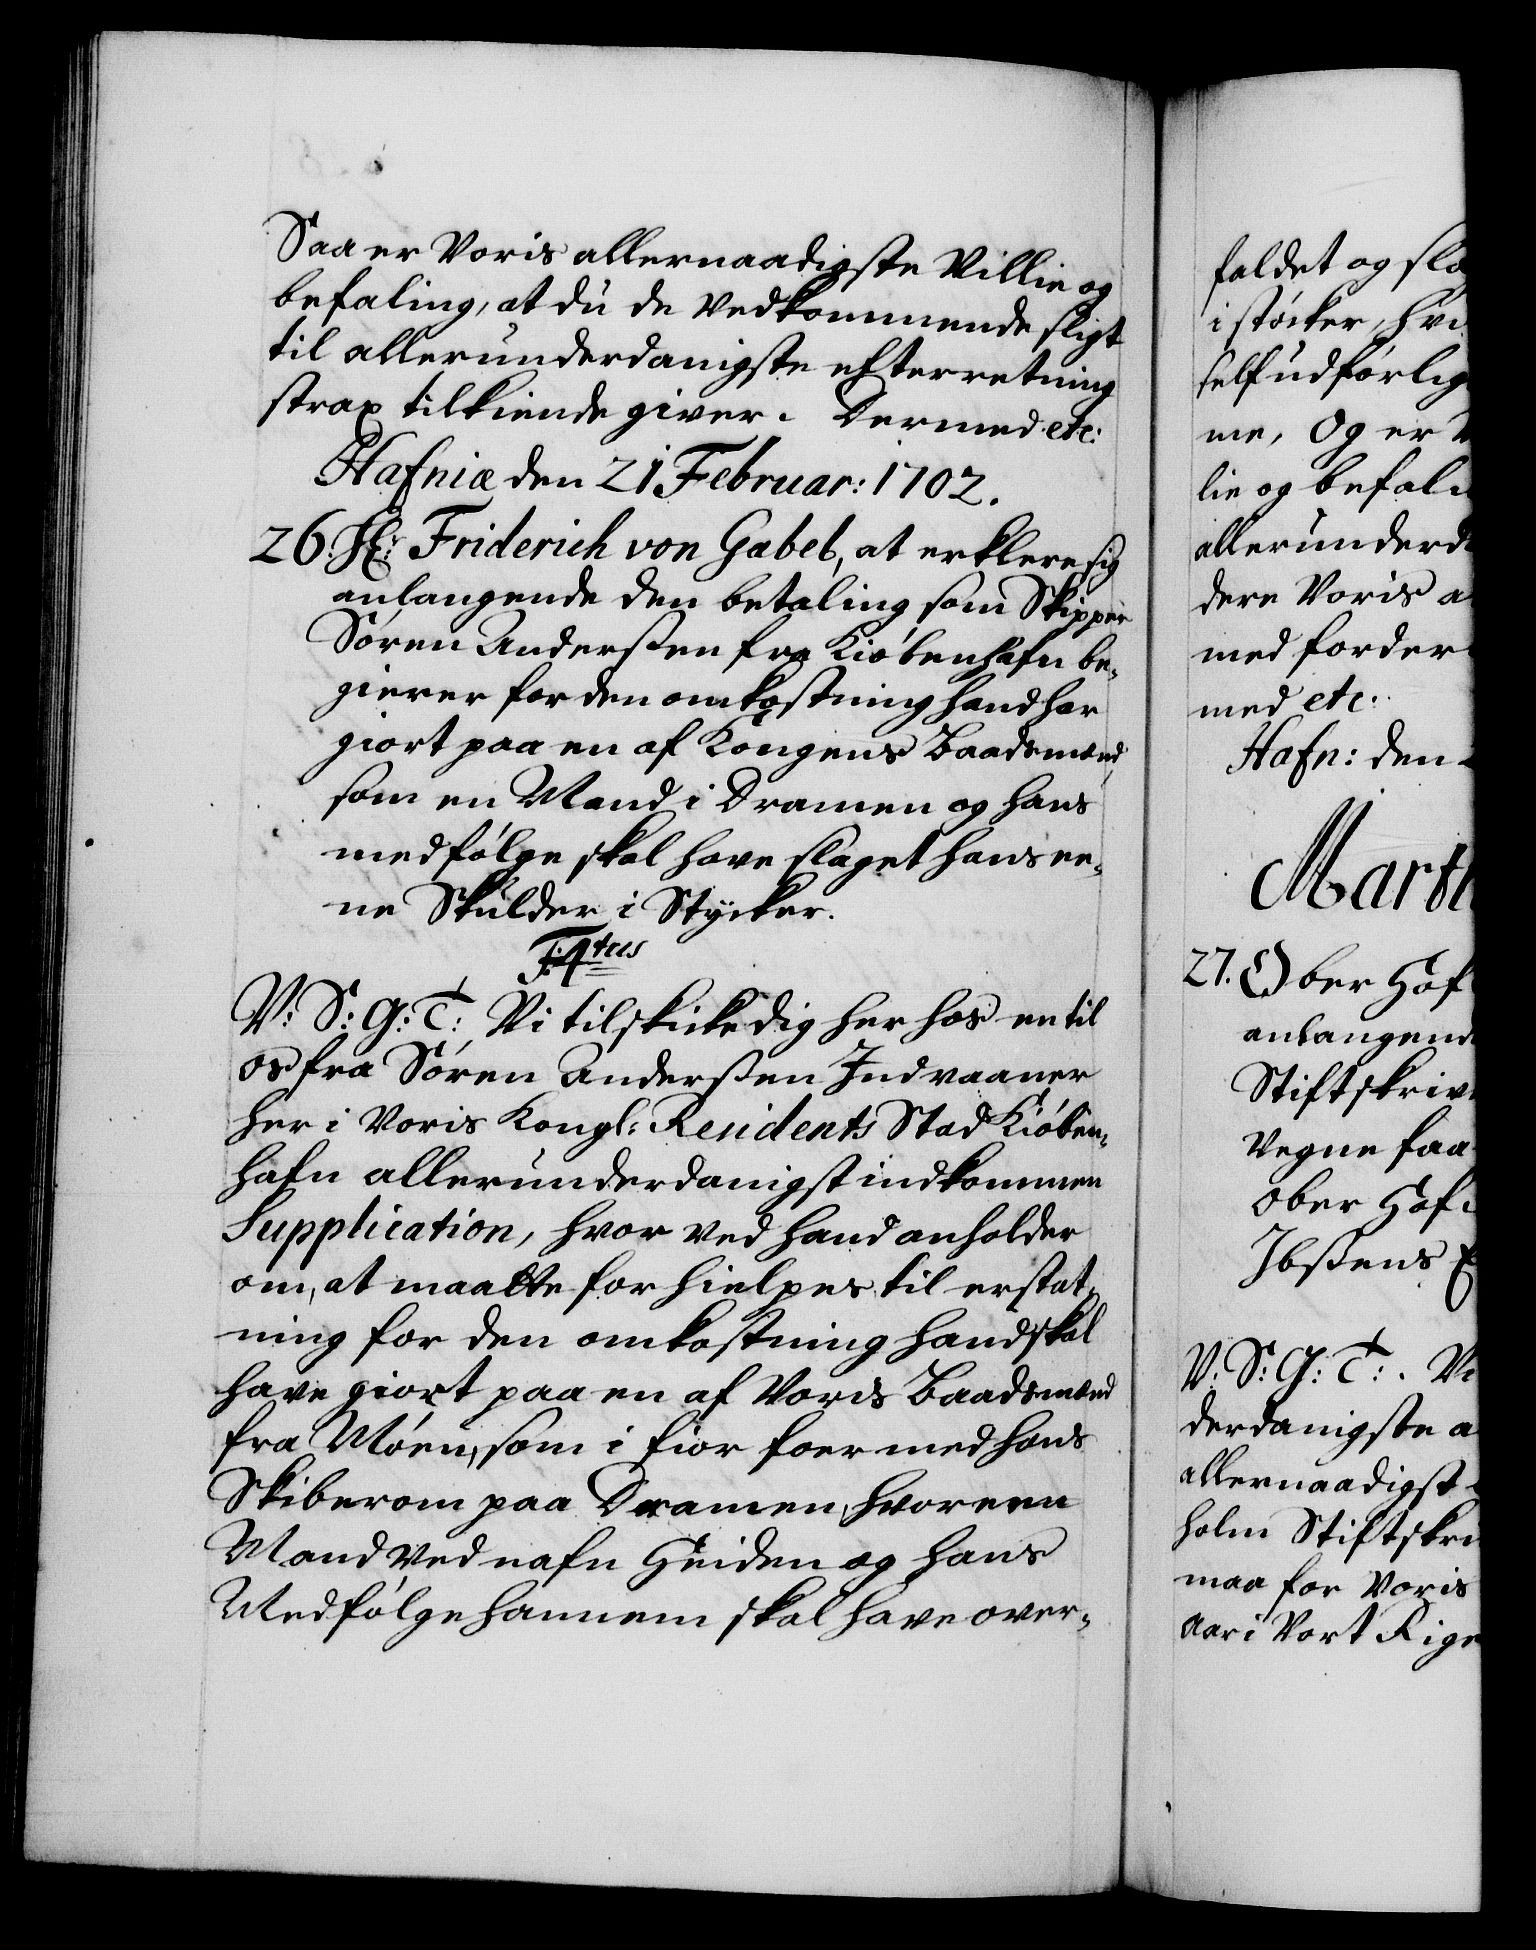 Saa er Voris allernaadigste Villie og
befaling, at du de Vedkommende sligt
til allerunderdanigste efterretning
strax tilkiende giver. Dermed etc:
Hafniæ den 21 Februar: 1702.
26. Hr: Friderich von Gabel, at erklere sig
anlangende den betaling som Skipper
Søren Anderßen fra Kiøbenhafn be-
gierer for den omkostning hand har
giort paa en af Kongens Baadsmænd,
som en Mand i Dramen og hans
medfølge skal have slaget hans ee-
ne Skulder i Stycker.
F: 4tus
V: S: G: T: Vi tilskicke dig her hos en til
os fra Søren Anderßen Indvaaner
her i Voris Kongl: Residents Stad Kiøben-
hafn allerunderdanigst indkommen
Supplication, hvor ved hand anholder
om, at maatte forhielpes til erstat-
ning for den omkostning hand skal
have giort paa en af Voris Baadsmænd
fra Møen, som i fior foer med hans
Skiberom paa Dramen, hvor een
Mand ved nafn Heiden og hans
Medfølge hannem skal have over-
faldet og sla
i stöcker, hvi
self udførlig
me, Og er V
lie og befali
allerunderd
dere Voris a
med forder
med etc.
Hafn: den
Marti
27. Ober Hof
anlangend
Stiftskriv
Vegne faa
Ober Hof
Ibßens
V: S: G: T: . Vi
derdanigste a
allernaadigst
holm Stiftskri
maa for Voris
aar i Vort Rige